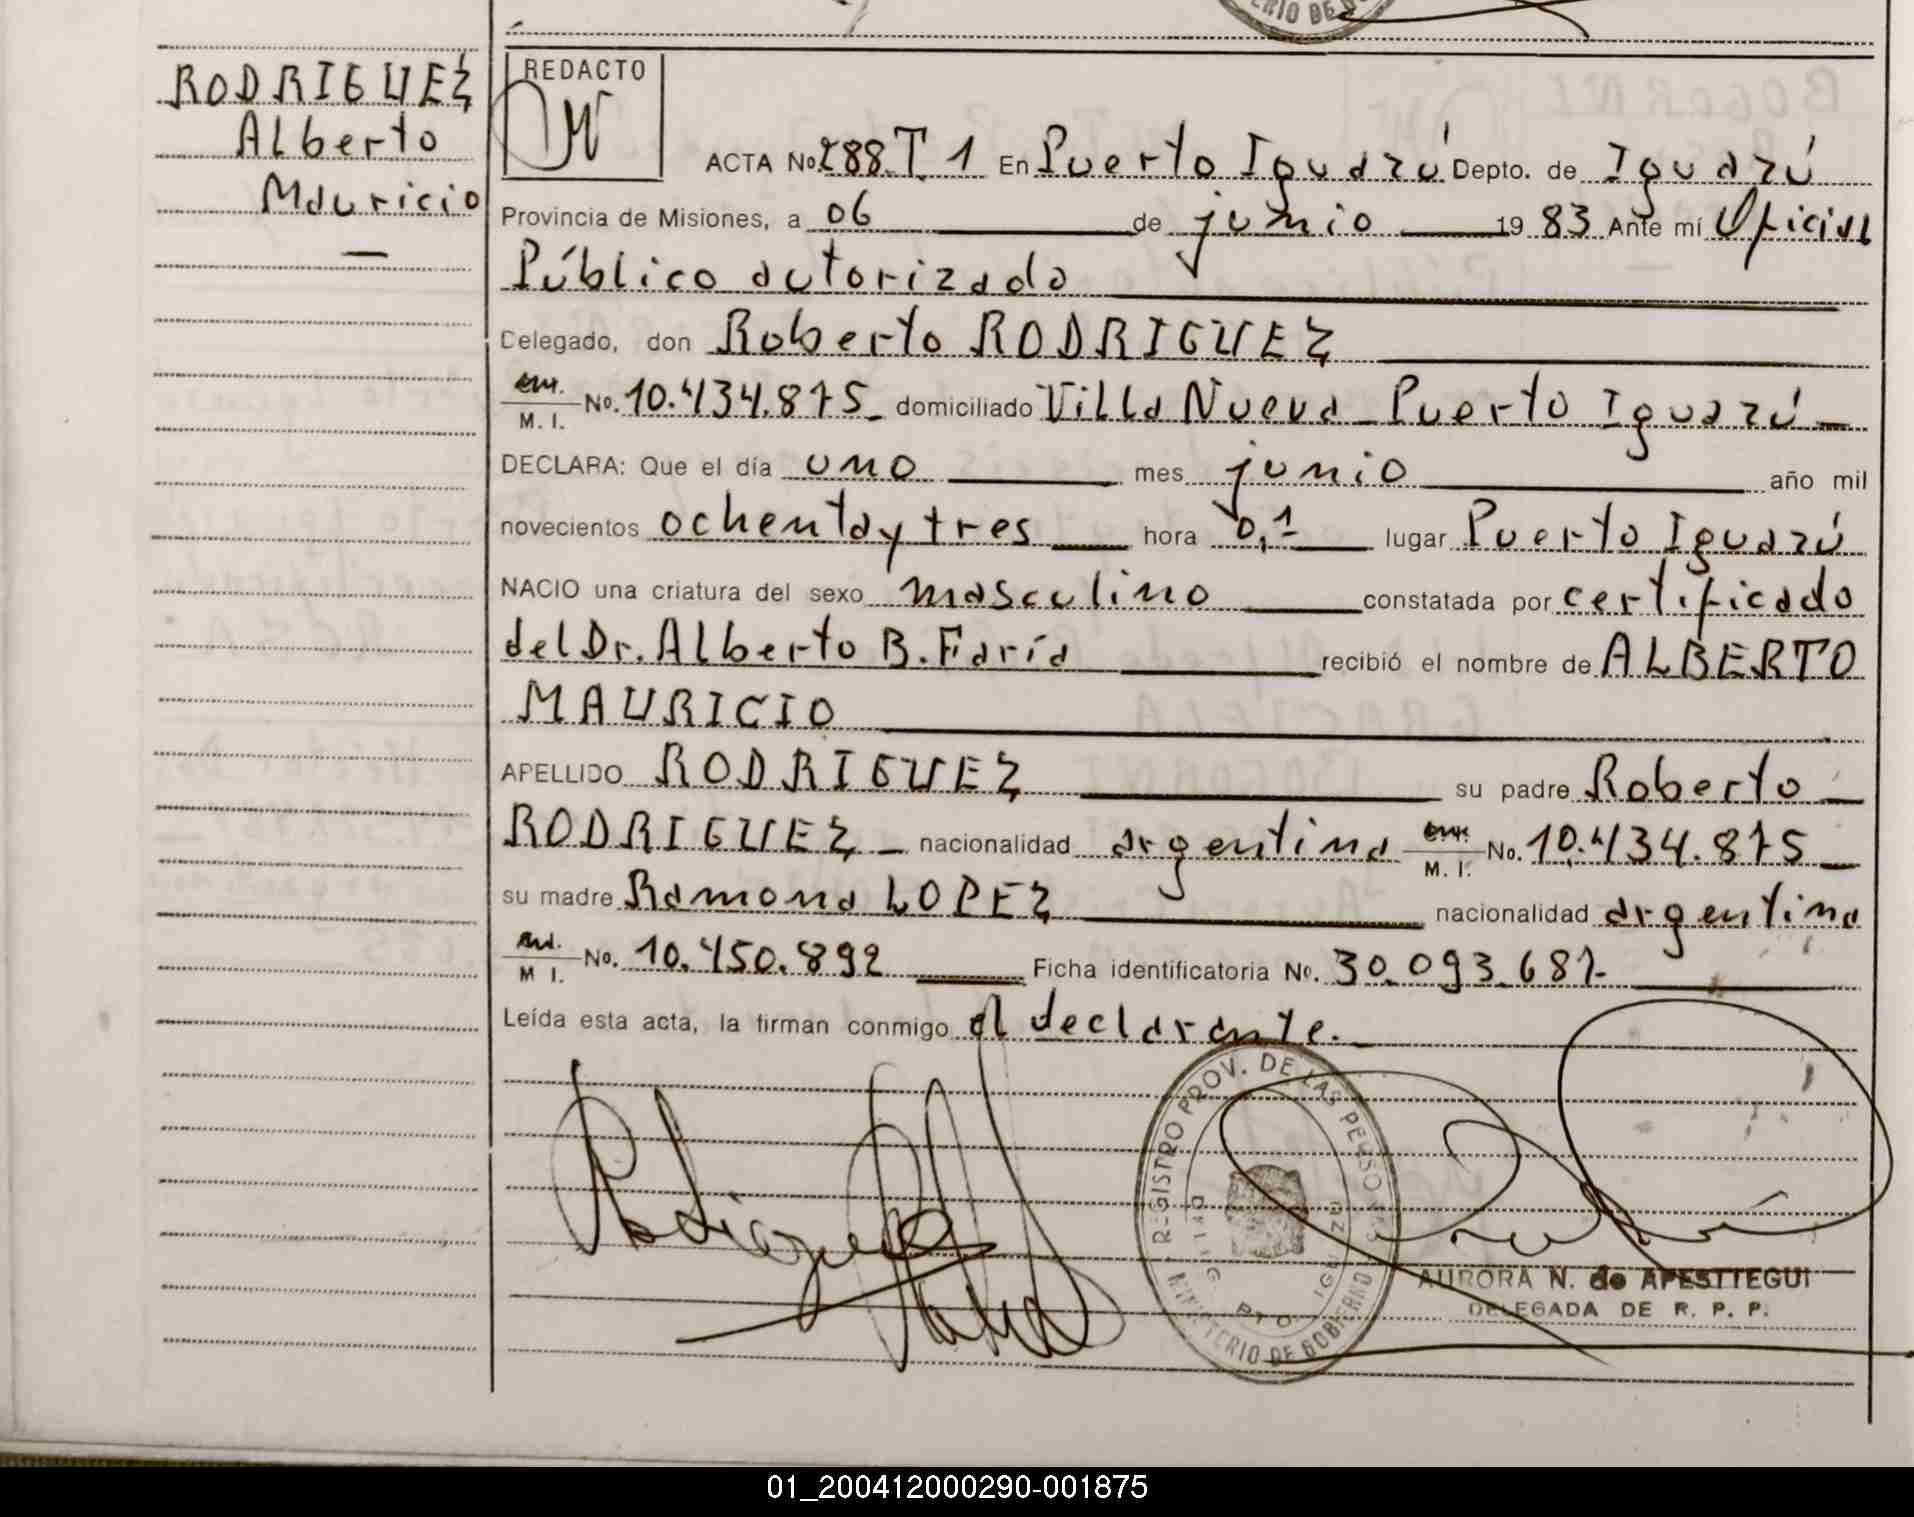 RIO DE
RODRIGUEZ
Alberto
Mauricio
REDACTO
ACTA No 288.T.1 En Puerto Iguazú Depto. de Iguazú
Provincia de Misiones, a 06 de junio 19 83 Ante mí Oficial
Público autorizado
Delegado, don Roberto RODRIGUEZ
M. I. No. 10.434.875 domiciliado Villa Nueva - Puerto Iguazú
DECLARA: Que el día uno mes junio año mil
novecientos ochentaytres hora 0,1 lugar Puerto Iguazú
NACIO una criatura del sexo masculino constatada por certificado
del Dr. Alberto B. Faría recibió el nombre de ALBERTO
MAURICIO
APELLIDO RODRIGUEZ su padre Roberto
RODRIGUEZ nacionalidad argentina M. I. No. 10.434.875
su madre Ramona LOPEZ nacionalidad argentina
M I. No. 10.450.892 Ficha identificatoria No. 30.093.687
Leída esta acta, la firman conmigo el declarante.
REGISTRO PROV. DE LAS PERSONAS
MINISTERIO DE GOBIERNO
PTO. IGUAZU
AURORA N. de APESTTEGUI
DELEGADA DE R. P. P.
01_200412000290-001875